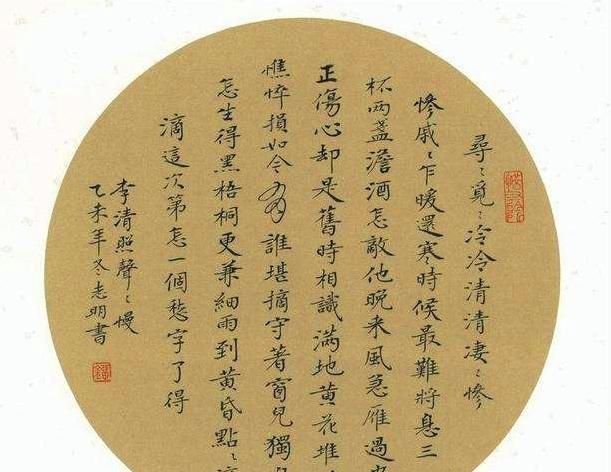 尋〻覓〻冷冷清清凄〻惨
惨戚〻乍暖還寒時候最難將息三
杯两盞澹酒怎敵他晚来風急雁過
正傷心却是舊時相識滿地黄花堆
憔悴損如今有誰堪摘守著窗兒獨
怎生得黑梧桐更兼細雨到黄昏點〻
滴這次第怎一個愁字了得
李清照聲〻慢
乙未年冬志明書